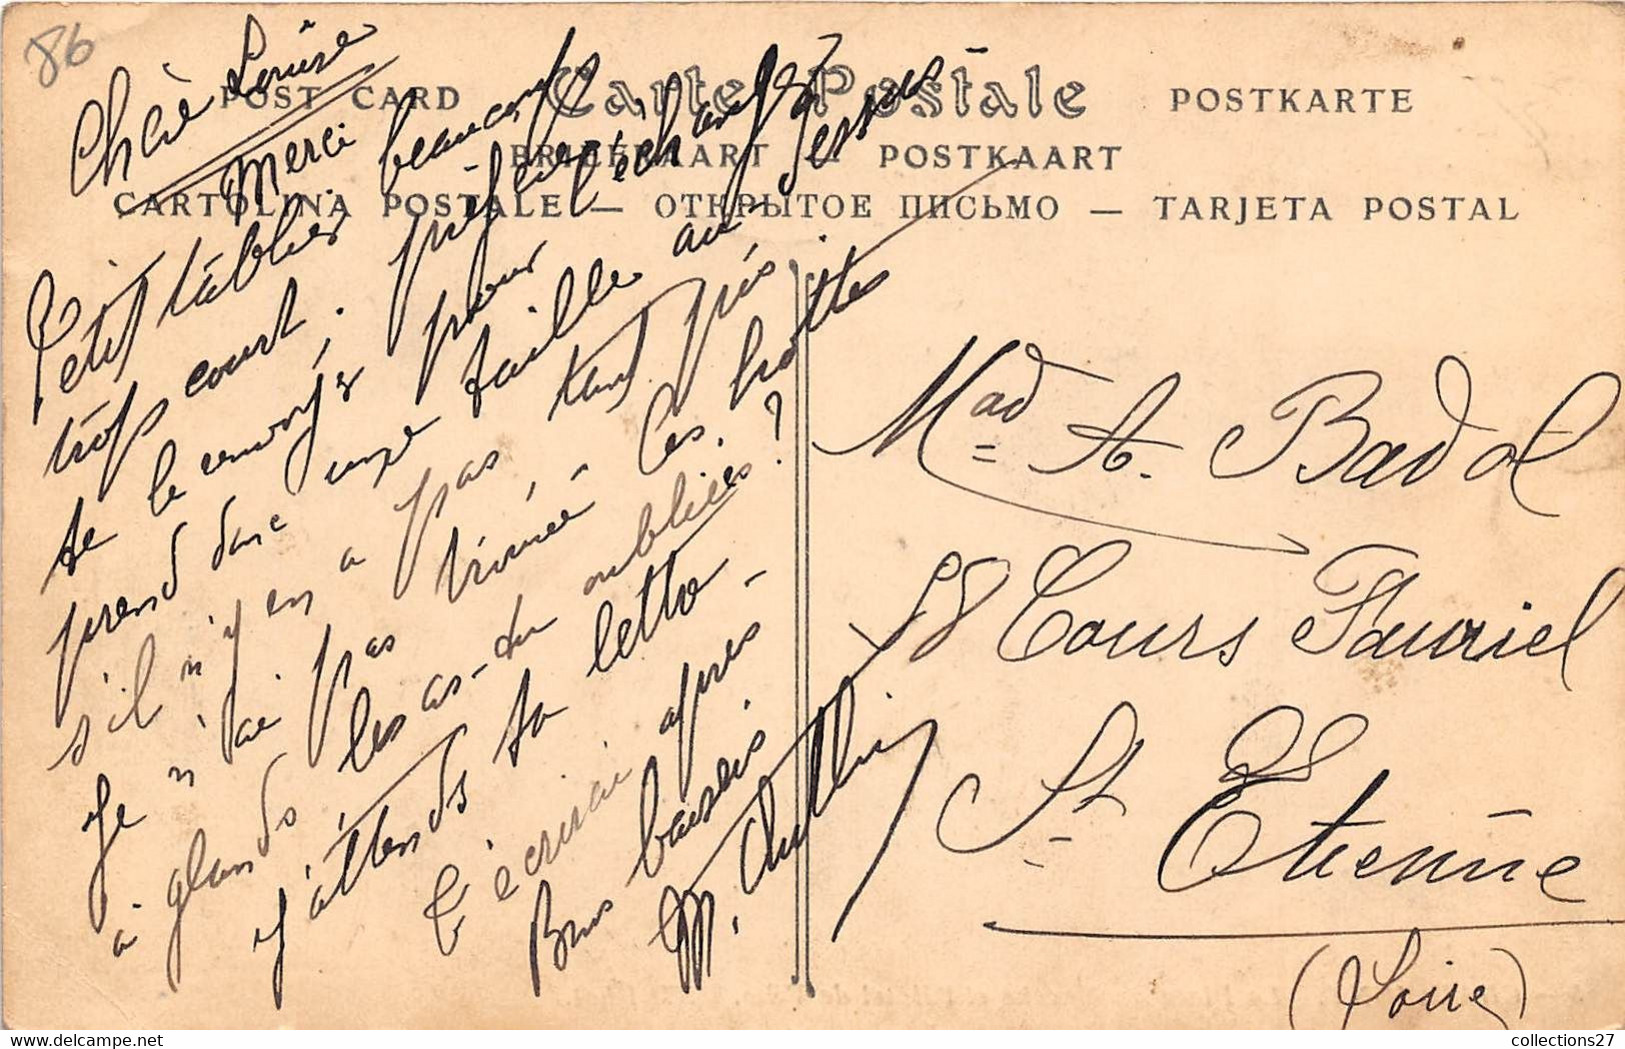 86
POST CARD Carte Postale POSTKARTE
BRIEFKAART — POSTKAART
CARTOLINA POSTALE — ОТКРЫТОЕ ПИСЬМО — TARJETA POSTAL
Chère Louise
Merci beaucoup
Petit tablier
trop court, préfère l'échange
te le renvoyé pour
prend donc une taille au-dessus
s'il n'y en a pas, tant pis.
Je n'ai pas trouvé les bottes
à glands, les as-tu oubliées ?
J'attends ta lettre -
t'écrirai après
Bons baisers
M.
Mad A. Badol
58 Cours Fauriel
St Etienne
(Loire)
collections27